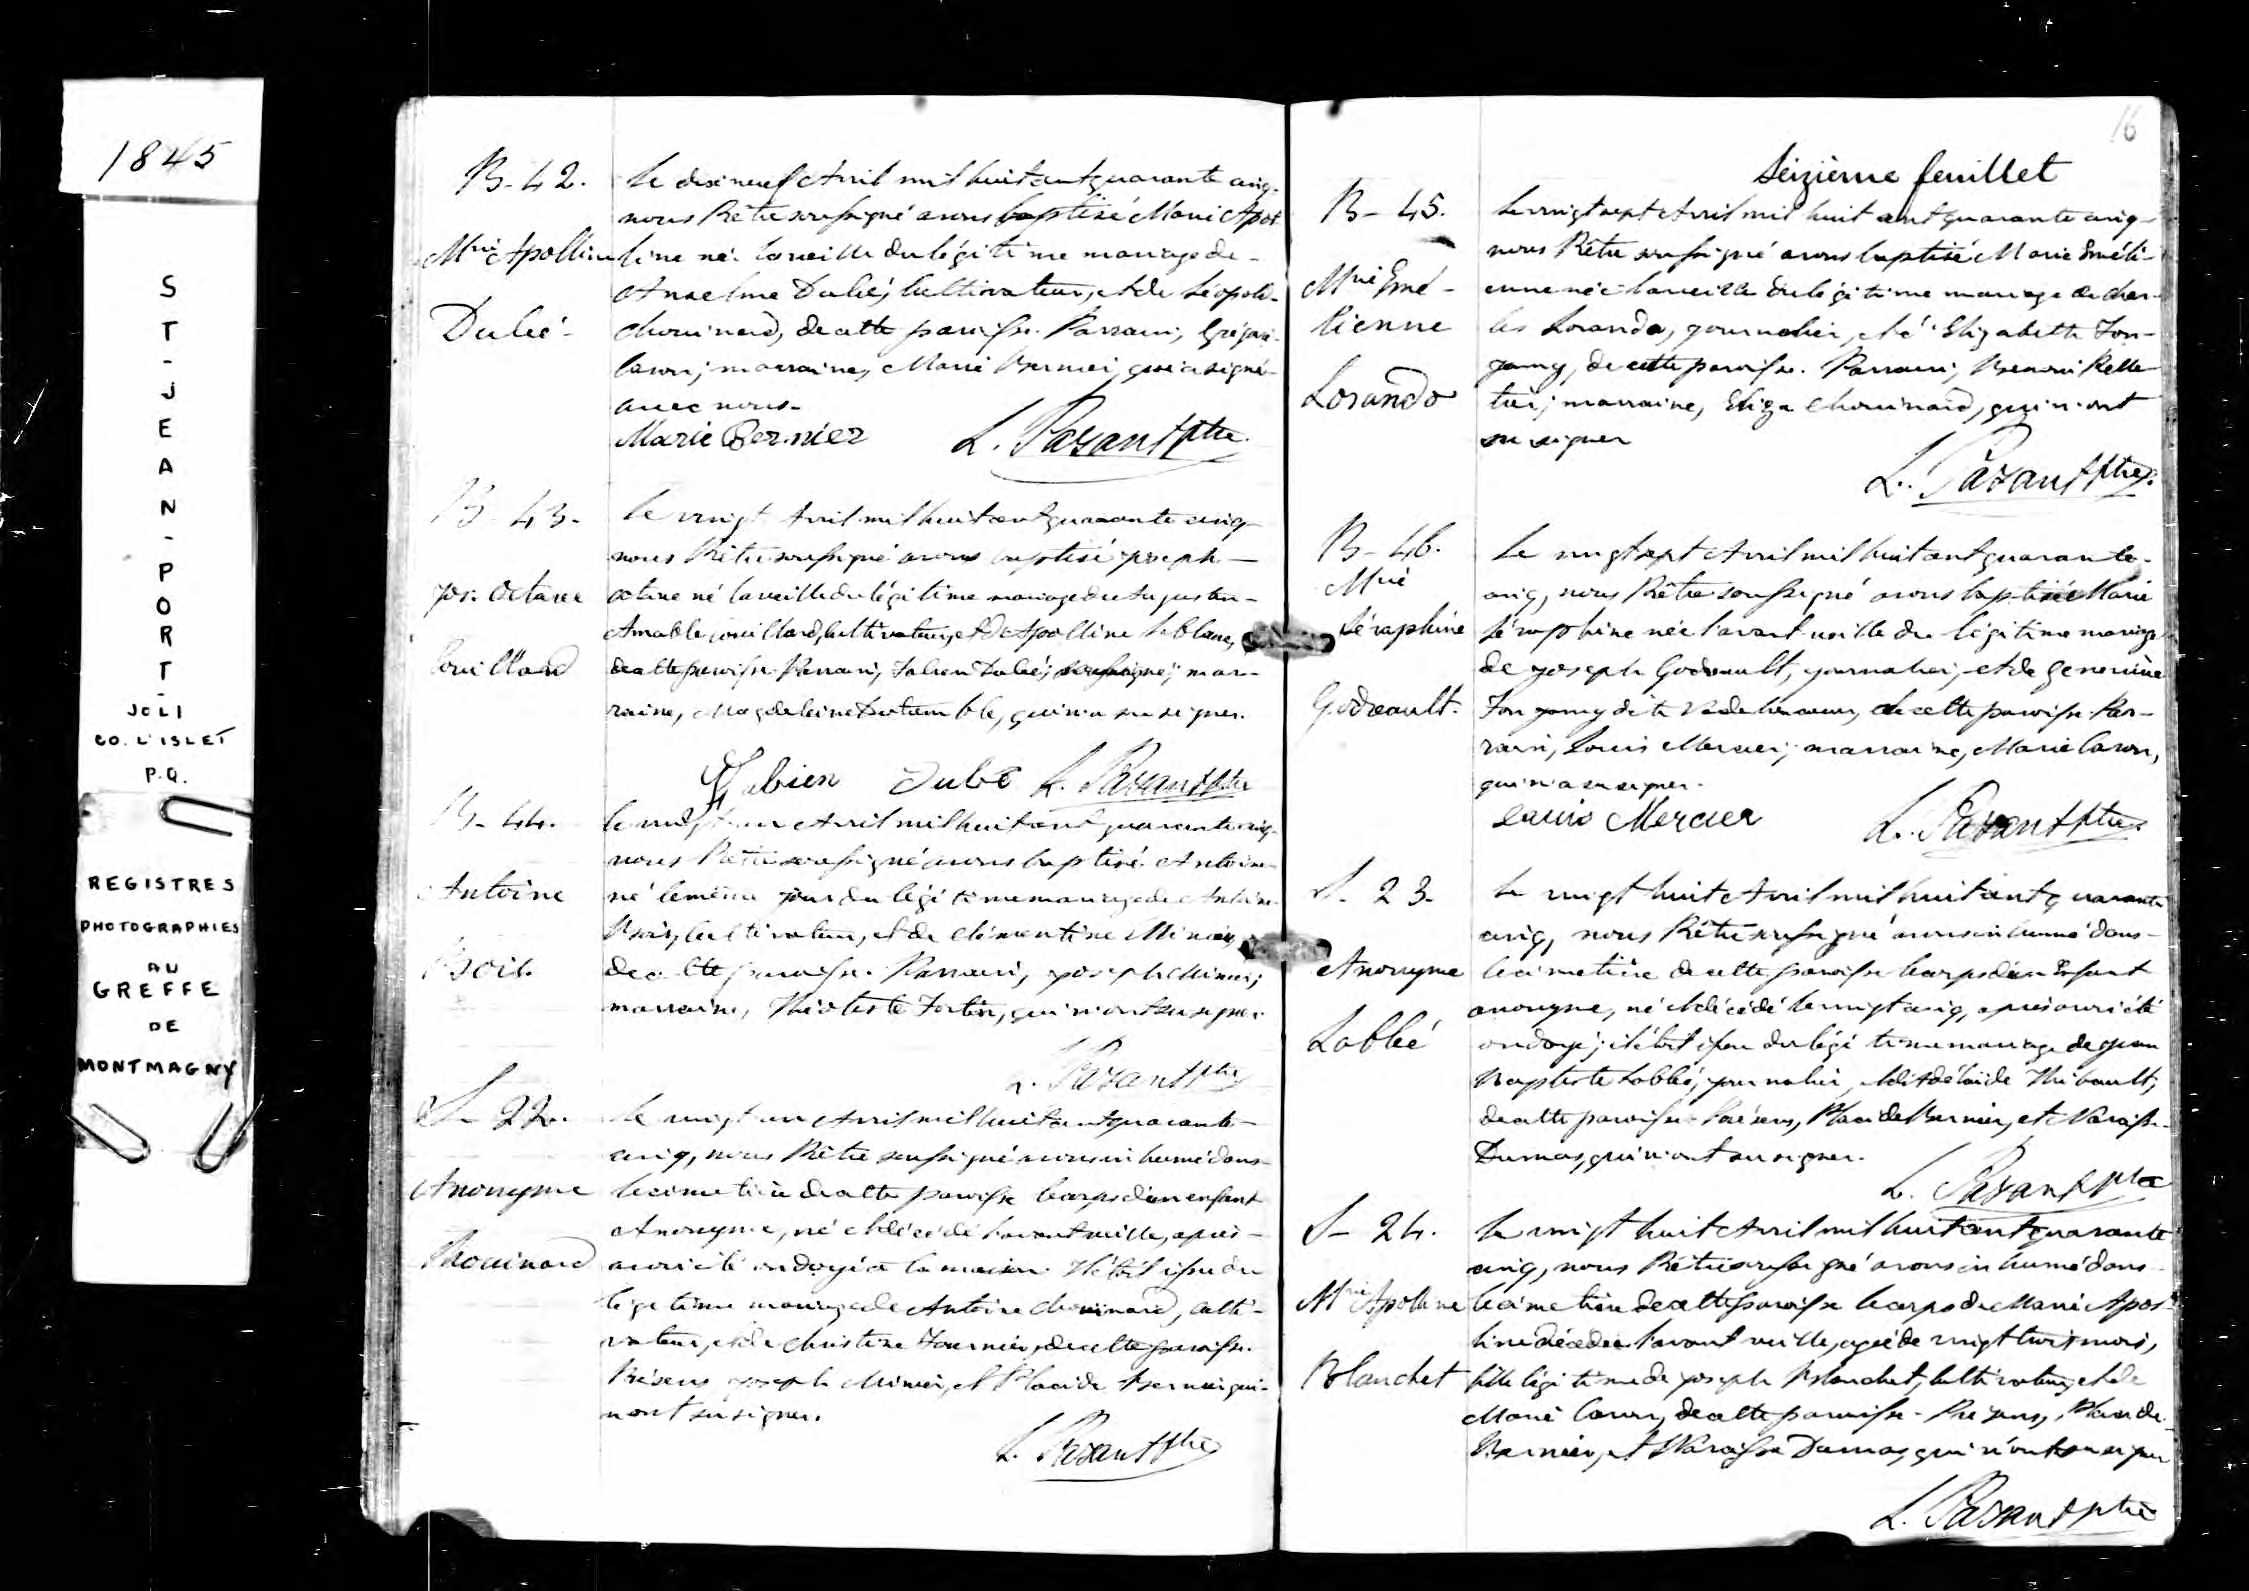 1845
ST-JEAN-PORT-
JOLI
CO. L'ISLET
P.Q.
REGISTRES
PHOTOGRAPHIES
AU
GREFFE
DE
MONTMAGNY
B-42.
Mrie Apolline
Dubé
Le dixneuf Avril mil huit cent quarante cinq
nous Prêtre soussigné avons baptisé Marie Apol
line née la veille du légitime mariage de
Anselme Dubé, cultivateur, et de Léopoldi
Chouinard, de cette paroisse. Parrain, Grégoire
Caron; marraine, Marie Bernier, qui a signé
avec nous.
Marie Bernier L. Parant Ptre
B-43.
Jos. Octave
Couillard
Le vingt Avril mil huit cent quarante cinq
nous Prêtre soussigné avons baptisé Joseph
Octave né la veille du légitime mariage de
Amable Couillard, cultivateur, et de Apolline Leblanc,
de cette paroisse. Parrain, Fabien Dubé, soussigné; mar-
raine, Magdeleine, qui n'a su signer.
Fabien Dubé L. Parant Ptre
B-44.
Antoine
Bois
Le vingt un Avril mil huit cent quarante cinq
nous Prêtre soussigné avons baptisé Antoine
né le même jour du légitime mariage de Antoine
Bois, cultivateur, et de Clémentine Minier,
de cette paroisse. Parrain, Joseph Minier;
marraine, Théotiste Fortin, qui n'ont su signer.
L. Parant Ptre
S-22.
Anonyme
Chouinard
Le vingt un Avril mil huit cent quarante
cinq, nous Prêtre soussigné avons inhumé dans
le cimetière de cette paroisse le corps d'un enfant
Anonyme, né et décédé l'avant veille, après
avoir été ondoyé à la maison. Il était issu du
légitime mariage de Antoine Chouinard, culti-
vateur, et de Christine Fournier, de cette paroisse.
Présens Joseph Minier, et Placide Bernier qui
n'ont su signer.
L. Parant Ptre
16
Seizième feuillet
B-45.
Mrie Emé-
lienne
Lorando
Le vingt sept Avril mil huit cent quarante cinq
nous Prêtre soussigné avons baptisé Marie Eméli-
enne née la veille du légitime mariage de Char-
les Lorando, journalier, et d'Elizabette Jon-
, de cette paroisse. Parrain, Benoni Pelle-
tier; marraine, Eliza Chouinard, qui n'ont
su signer
L. Parant Ptre
B-46.
Mrie
Séraphine
Godreault.
Le vingt sept Avril mil huit cent quarante
cinq, nous Prêtre soussigné avons baptisé Marie
Séraphine née l'avant veille du légitime mariage
de Joseph Godreault, journalier, et de Genevieve
dite, de cette paroisse. Par-
rain, Louis Mercier; marraine, Marie Caron,
qui n'a su signer.
Louis Mercier L. Parant Ptre
S-23.
Anonyme
Labbé
Le vingt huit Avril mil huit cent quarante
cinq, nous Prêtre soussigné avons inhumé dans
le cimetière de cette paroisse le corps d'un Enfant
anonyme, né et décédé le vingt cinq, après avoir été
ondoyé; il était issu du légitime mariage de Jean
Baptiste Labbé, journalier, et d'Adélaïde Thibault,
de cette paroisse. Présens, Placide Bernier, et Narcisse
Dumas, qui n'ont su signer.
L. Parant Ptre
S-24.
Mrie Apolline
Blanchet
Le vingt huit Avril mil huit cent quarante
cinq, nous Prêtre soussigné avons inhumé dans
le cimetière de cette paroisse le corps de Marie Apol-
line décédée l'avant veille, agée de vingt huit mois,
fille légitime de Joseph Blanchet, cultivateur, et de
Marie Caron, de cette paroisse. Présens, Placide
Bernier, et Narcisse Dumas, qui n'ont su signer
L. Parant Ptre